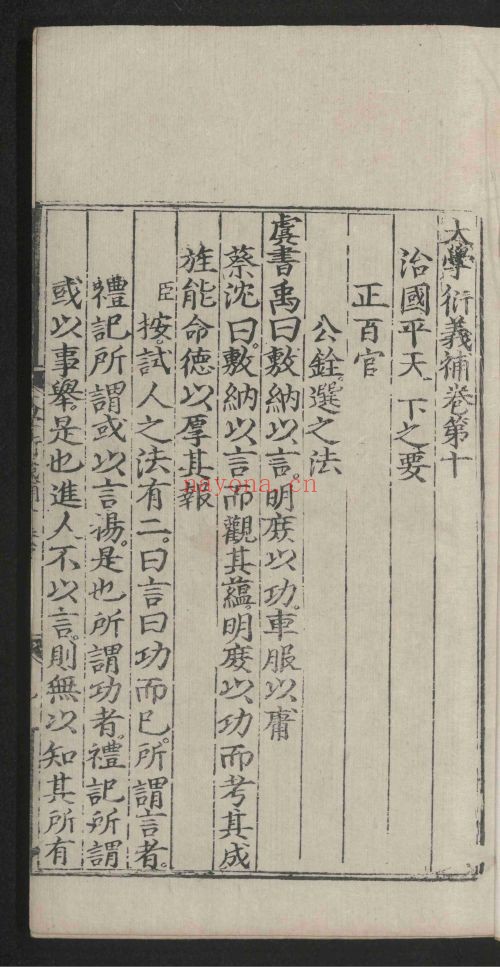 大學衍義補卷第十
治國平天下之要
正百官
公銓選之法
虞書禹曰敷納以言。明庶以功。車服以庸
蔡沈曰。敷納以言而觀其蘊。明庶以功而考其成
旌能命德以厚其報
臣按。試人之法有二。曰言曰功而已。所謂言者。
禮記所謂或以言揚。是也所謂功者。禮記所謂
或以事舉。是也進人不以言。則無以知其所有
nayona.cn